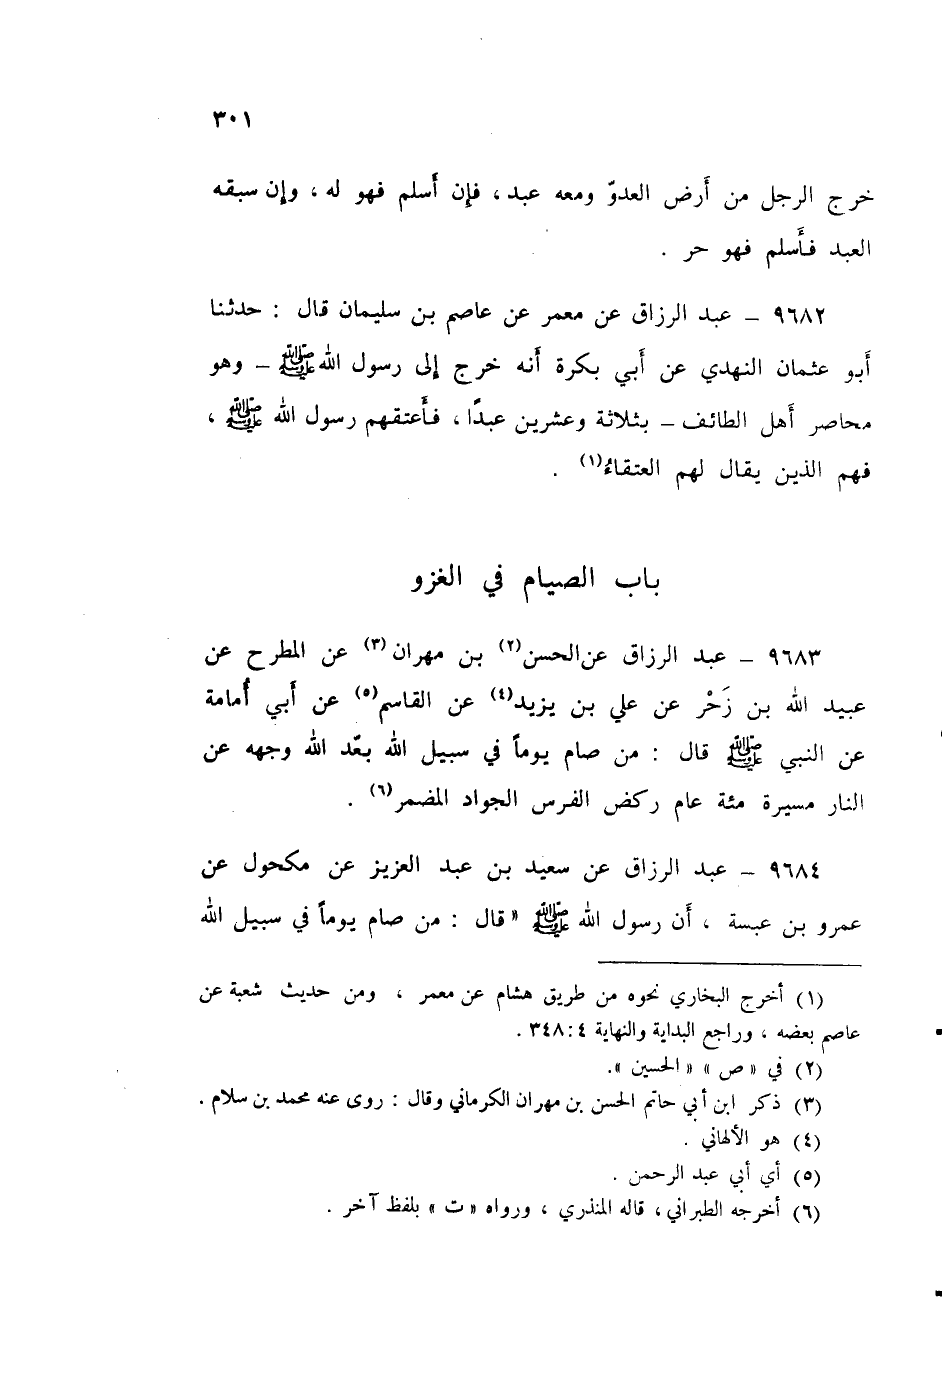 ٣٠١
خرج الرجل من أَرض العدوّ ومعه عبد ، فإِن أَسلم فهو له ، وإِن سبقه
العبد فأَسلم فهو حر .
٩٦٨٢ – عبد الرزاق عن معمر عن عاصم بن سليمان قال : حدثنا
أَبو عثمان النهدي عن أَبي بكرة أَنه خرج إِلى رسول الله ﷺ – وهو
محاصر أَهل الطائف – بثلاثة وعشرين عبدًا ، فأَعتقهم رسول الله ﷺ ،
فهم الذين يقال لهم العتقاءُ(١) .
باب الصيام في الغزو
٩٦٨٣ – عبد الرزاق عن الحسن(٢) بن مهران(٣) عن المطرح عن
عبيد الله بن زَحْر عن علي بن يزيد(٤) عن القاسم(٥) عن أَبي أُمامة
عن النبي ﷺ قال : من صام يوماً في سبيل الله بعّد الله وجهه عن
النار مسيرة مئة عام ركض الفرس الجواد المضمر(٦) .
٩٦٨٤ – عبد الرزاق عن سعيد بن عبد العزيز عن مكحول عن
عمرو بن عبسة ، أَن رسول الله ﷺ « قال : من صام يوماً في سبيل الله
(١) أخرج البخاري نحوه من طريق هشام عن معمر ، ومن حديث شعبة عن
عاصم بعضه ، وراجع البداية والنهاية ٤ : ٣٤٨ .
(٢) في « ص » « الحسين ».
(٣) ذكر ابن أبي حاتم الحسن بن مهران الكرماني وقال : روى عنه محمد بن سلام .
(٤) هو الألهاني .
(٥) أي أبي عبد الرحمن .
(٦) أخرجه الطبراني ، قاله المنذري ، ورواه « ت » بلفظ آخر .